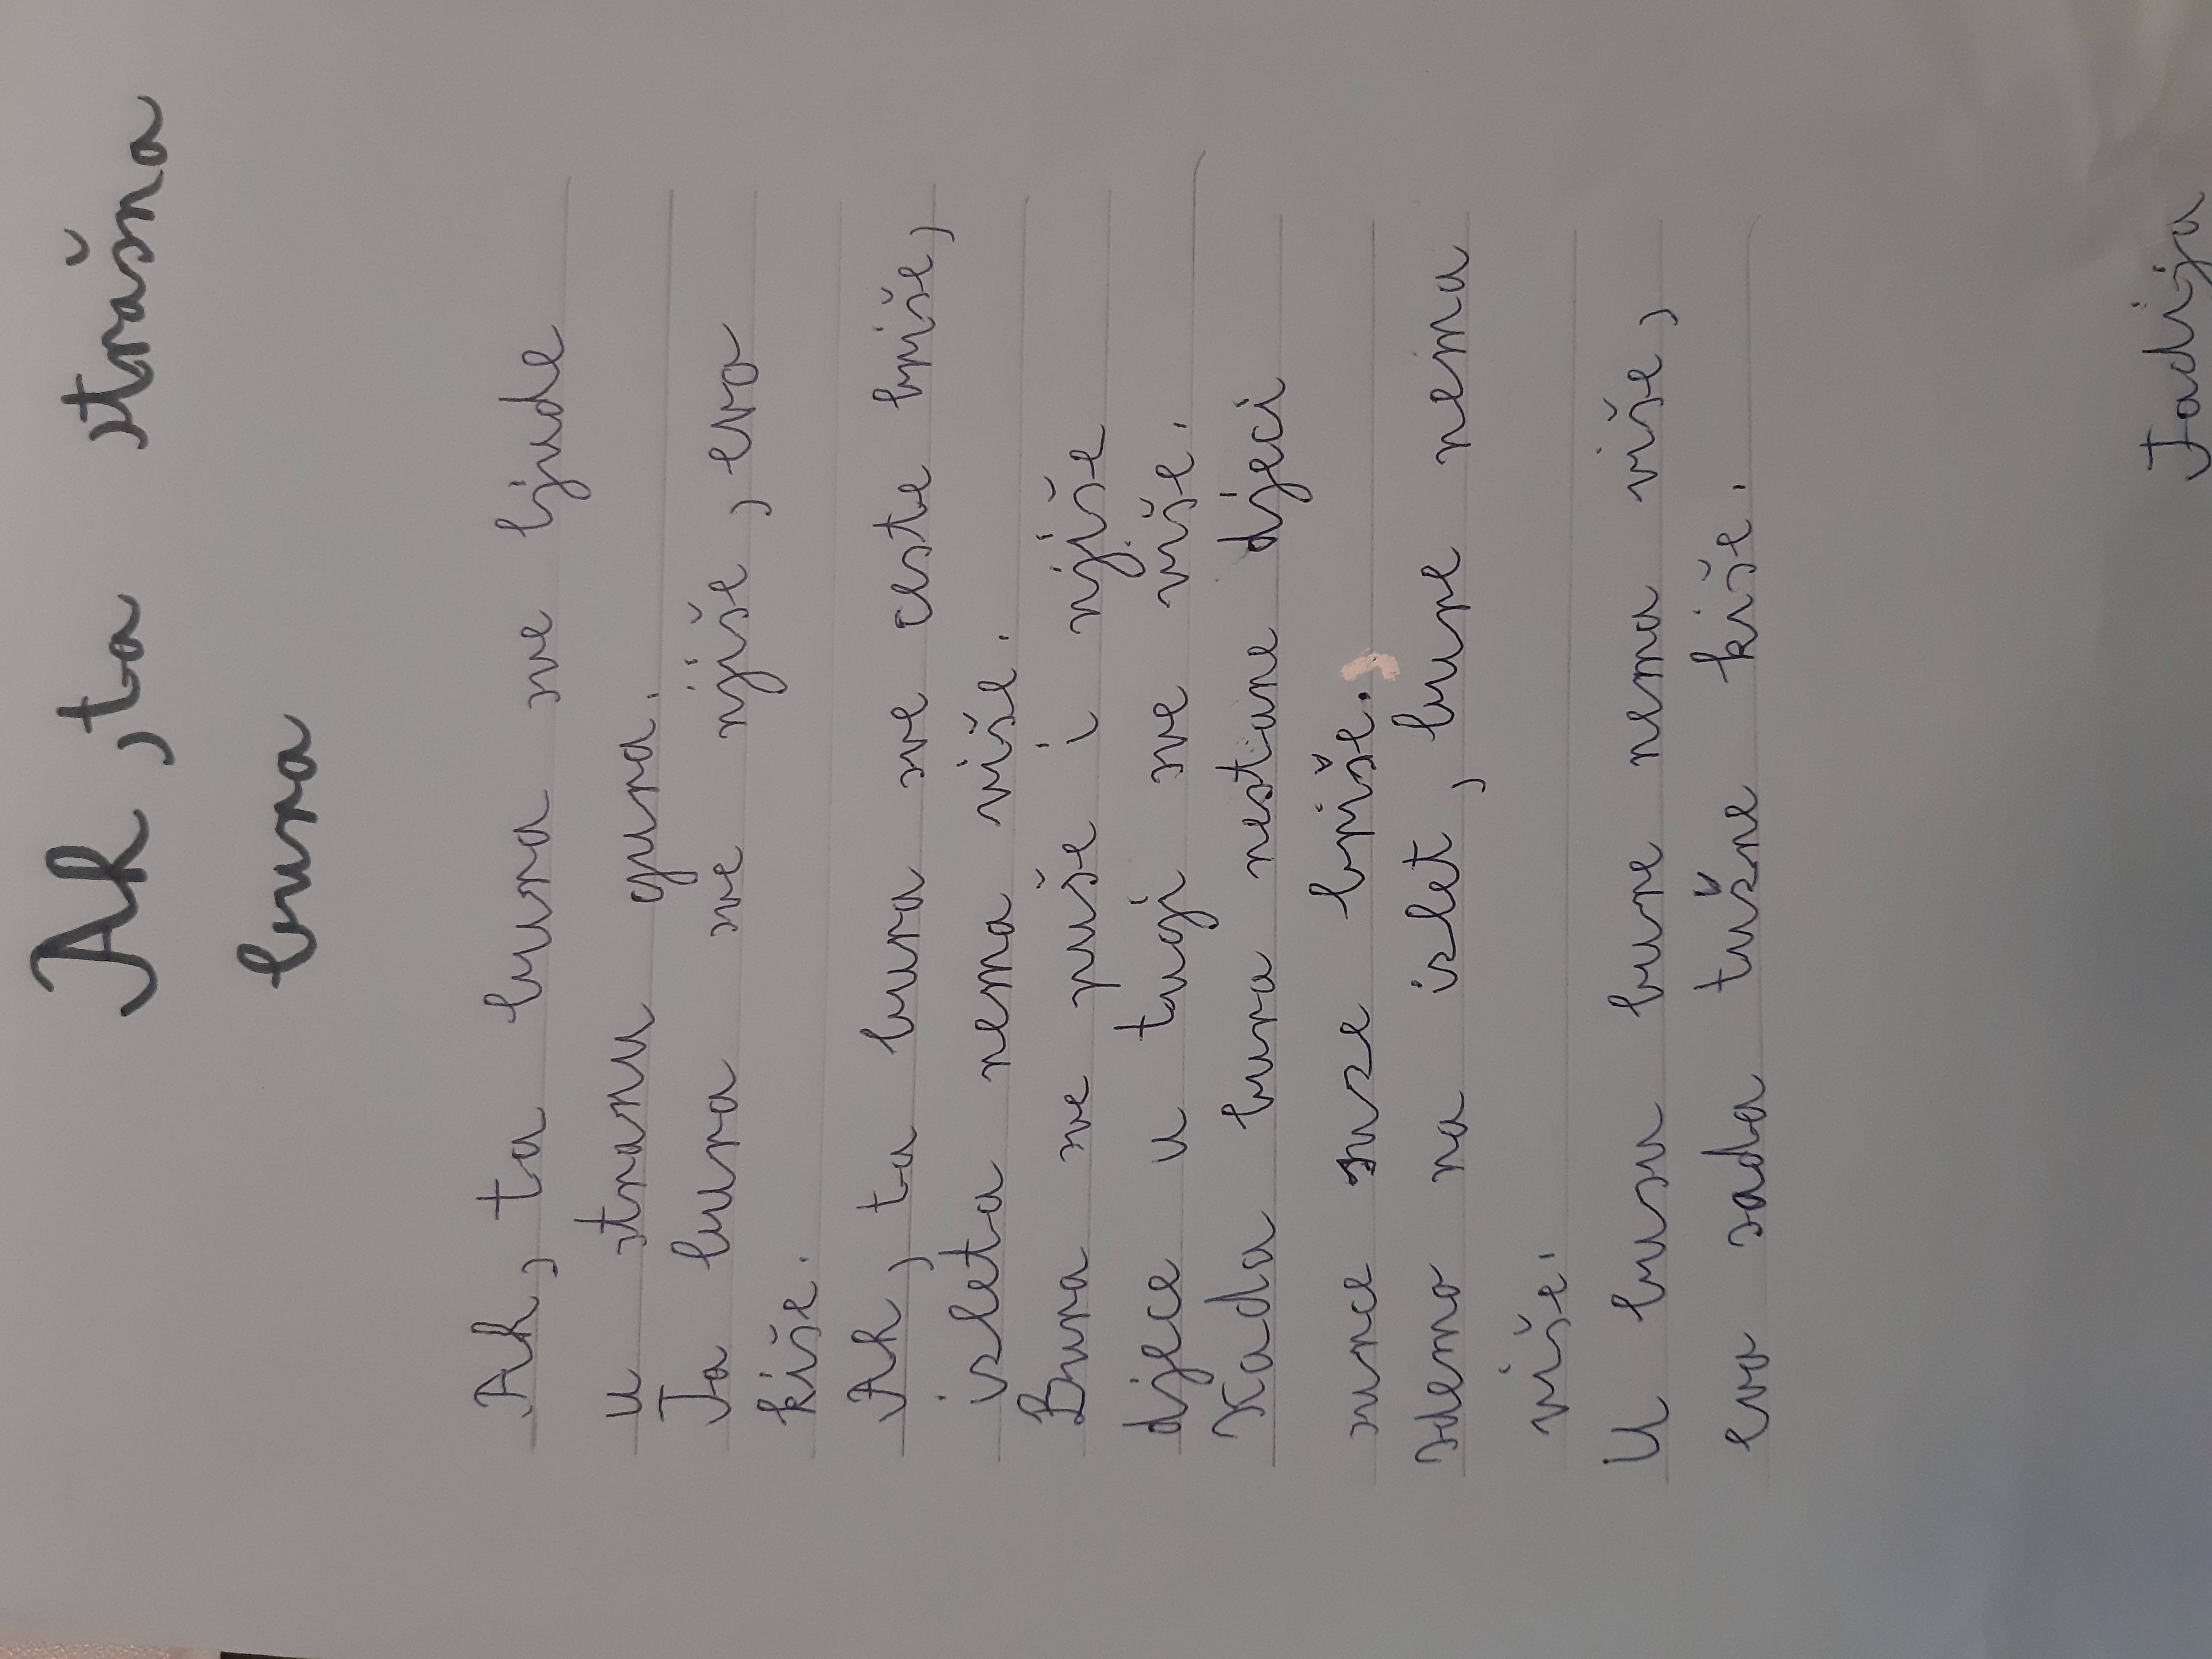 Ah, ta strašna
bura
Ah, ta bura sve ljude
u stranu gura.
Ta bura sve njiše, evo
kiše.
Ah, ta bura sve ceste briše,
izleta nema više.
Bura sve puše i njiše
djece u tugi sve više.
Kada bura nestane djeci
sunce suze briše.
Idemo na izlet, bure nema
više.
U busu bure nema više,
evo sada tužne kiše.
Tadija